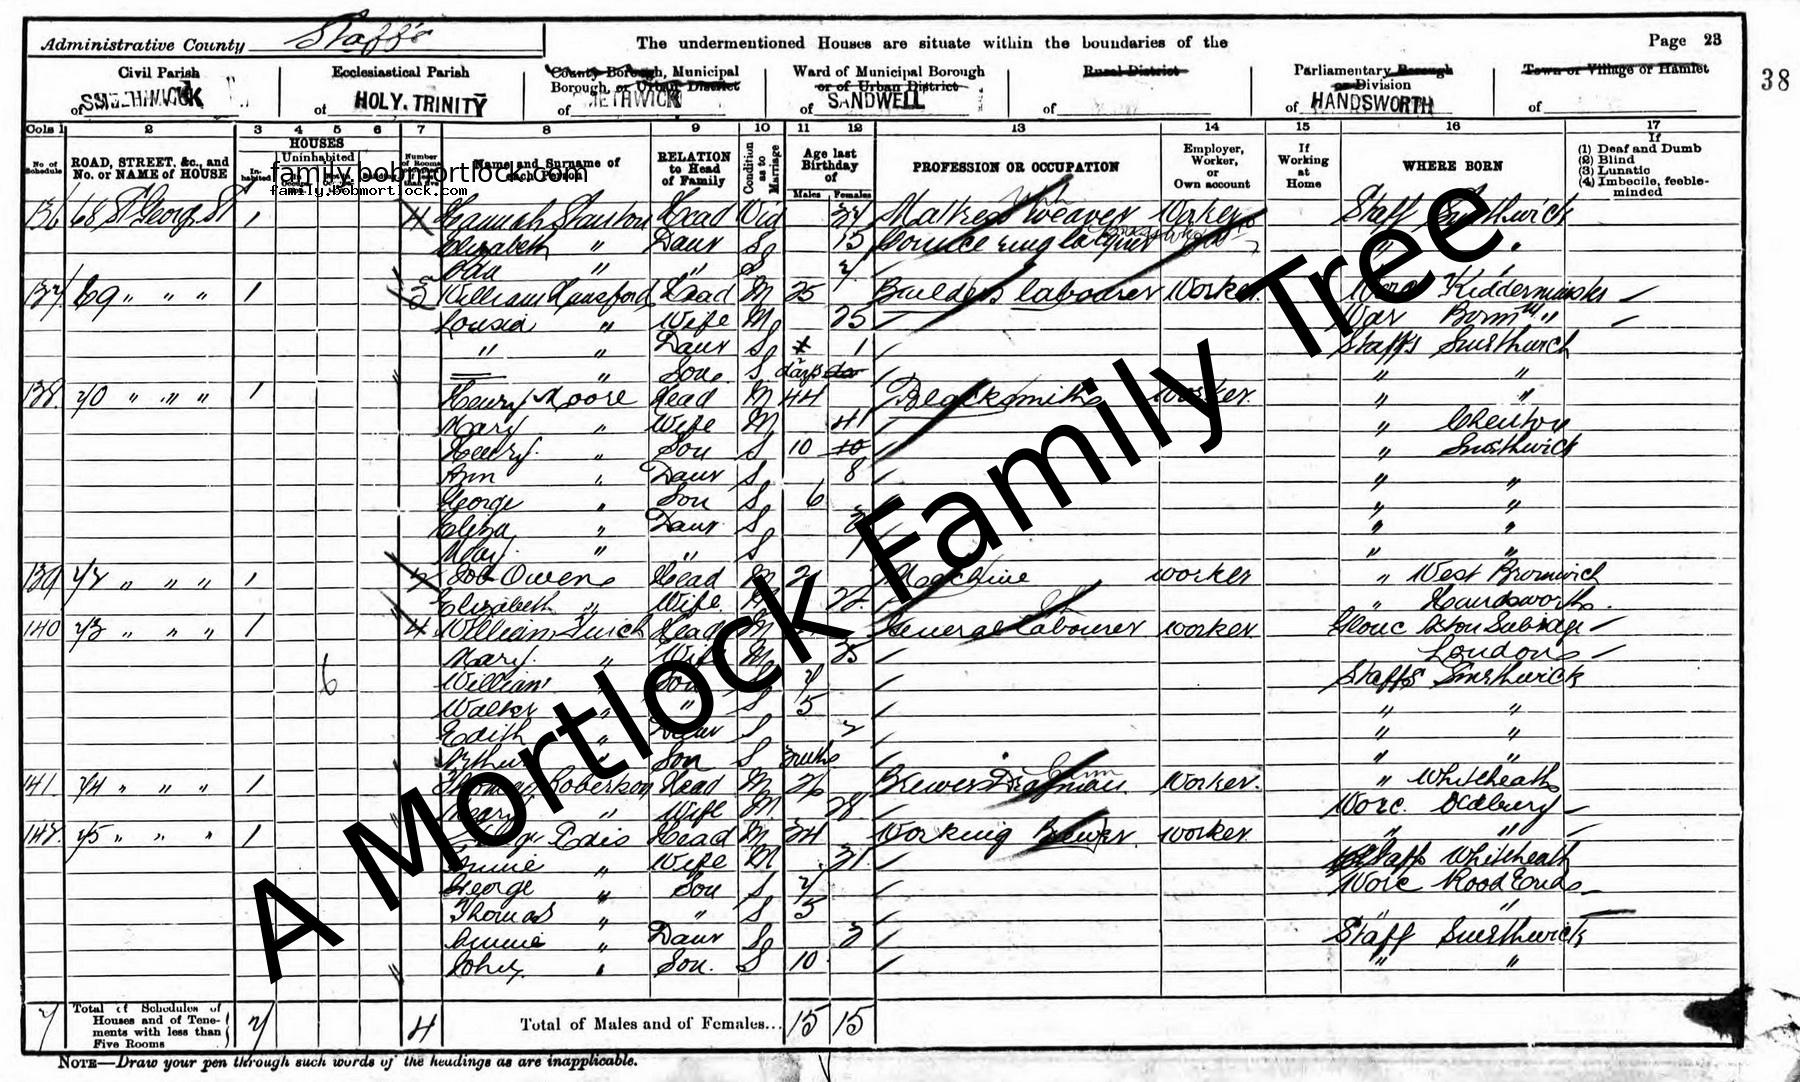 Administrative County Staffs
The undermentioned Houses are situate within the boundaries of the
Page 23
38
Civil Parish
of SMETHWICK
Ecclesiastical Parish
of HOLY. TRINITY
County Borough, Municipal
Borough, or Urban District
of SMETHWICK
Ward of Municipal Borough
or of Urban District
of SANDWELL
Rural District
of
Parliamentary Borough
or Division
of HANDSWORTH
Town or Village or Hamlet
of
Cols 1 2 3 4 5 6 7 8 9 10 11 12 13 14 15 16 17
No of Schedule
ROAD, STREET, &c., and
No. or NAME of HOUSE
HOUSES
Inhabited
Uninhabited
Name and Surname of
each Person
RELATION
to Head
of Family
Condition as to Marriage
Age last
Birthday
of
Males Females
PROFESSION OR OCCUPATION
Employer,
Worker,
or
Own account
If
Working
at
Home
WHERE BORN
If
(1) Deaf and Dumb
(2) Blind
(3) Lunatic
(4) Imbecile, feeble-
minded
family.bobmortlock.com
family.bobmortlock.com
136 68 St George St 1 4 Hannah Head Wid Mattress Weaver Worker Staff Smethwick
Elizabeth " Daur S 15 "
" " S
137 69 " " " 1 3 William Head M 25 Builders labourer Worker Worc Kidderminster
Louisa " Wife M 25 War
" " Daur S 1 Staffs Smethwick
" Son S 2 days " "
138 70 " " " 1 Henry Moore Head M 44 Blacksmith Worker " "
Mary " Wife M 41 "
Henry " Son S 10 " Smethwick
Ann " Daur S 8 " "
George " Son S 6 " "
Eliza " Daur S 3 " "
May " " S 1 " "
139 72 " " " 1 Job Owens Head M Machine worker " West Bromwich
Elizabeth " Wife M 22 " Handsworth
140 73 " " " 1 4 William Head M General labourer worker Glouc
Mary " Wife M 25 London
6
William " Son S 7 Staffs Smethwick
Walter " " S 5 " "
Edith " Daur S 2 " "
Arthur " Son S 3 mths " "
141 74 " " " 1 Thomas Roberson Head M 26 Brewers Drayman Worker " Whiteheath
Mary " Wife M 28 Worc. Oldbury
142 75 " " " 1 Head M 34 Working Brewer worker " "
Annie " Wife M 31 Staffs Whiteheath
George " Son S 7 Worc Rood End
Thomas " " S 5 " "
Annie " Daur S 3 Staff Smethwick
John " Son S 10 " "
7 Total of Schedules of
Houses and of Tene-
ments with less than
Five Rooms 7 4 Total of Males and of Females... 15 15
NOTE—Draw your pen through such words of the headings as are inapplicable.
A Mortlock Family Tree